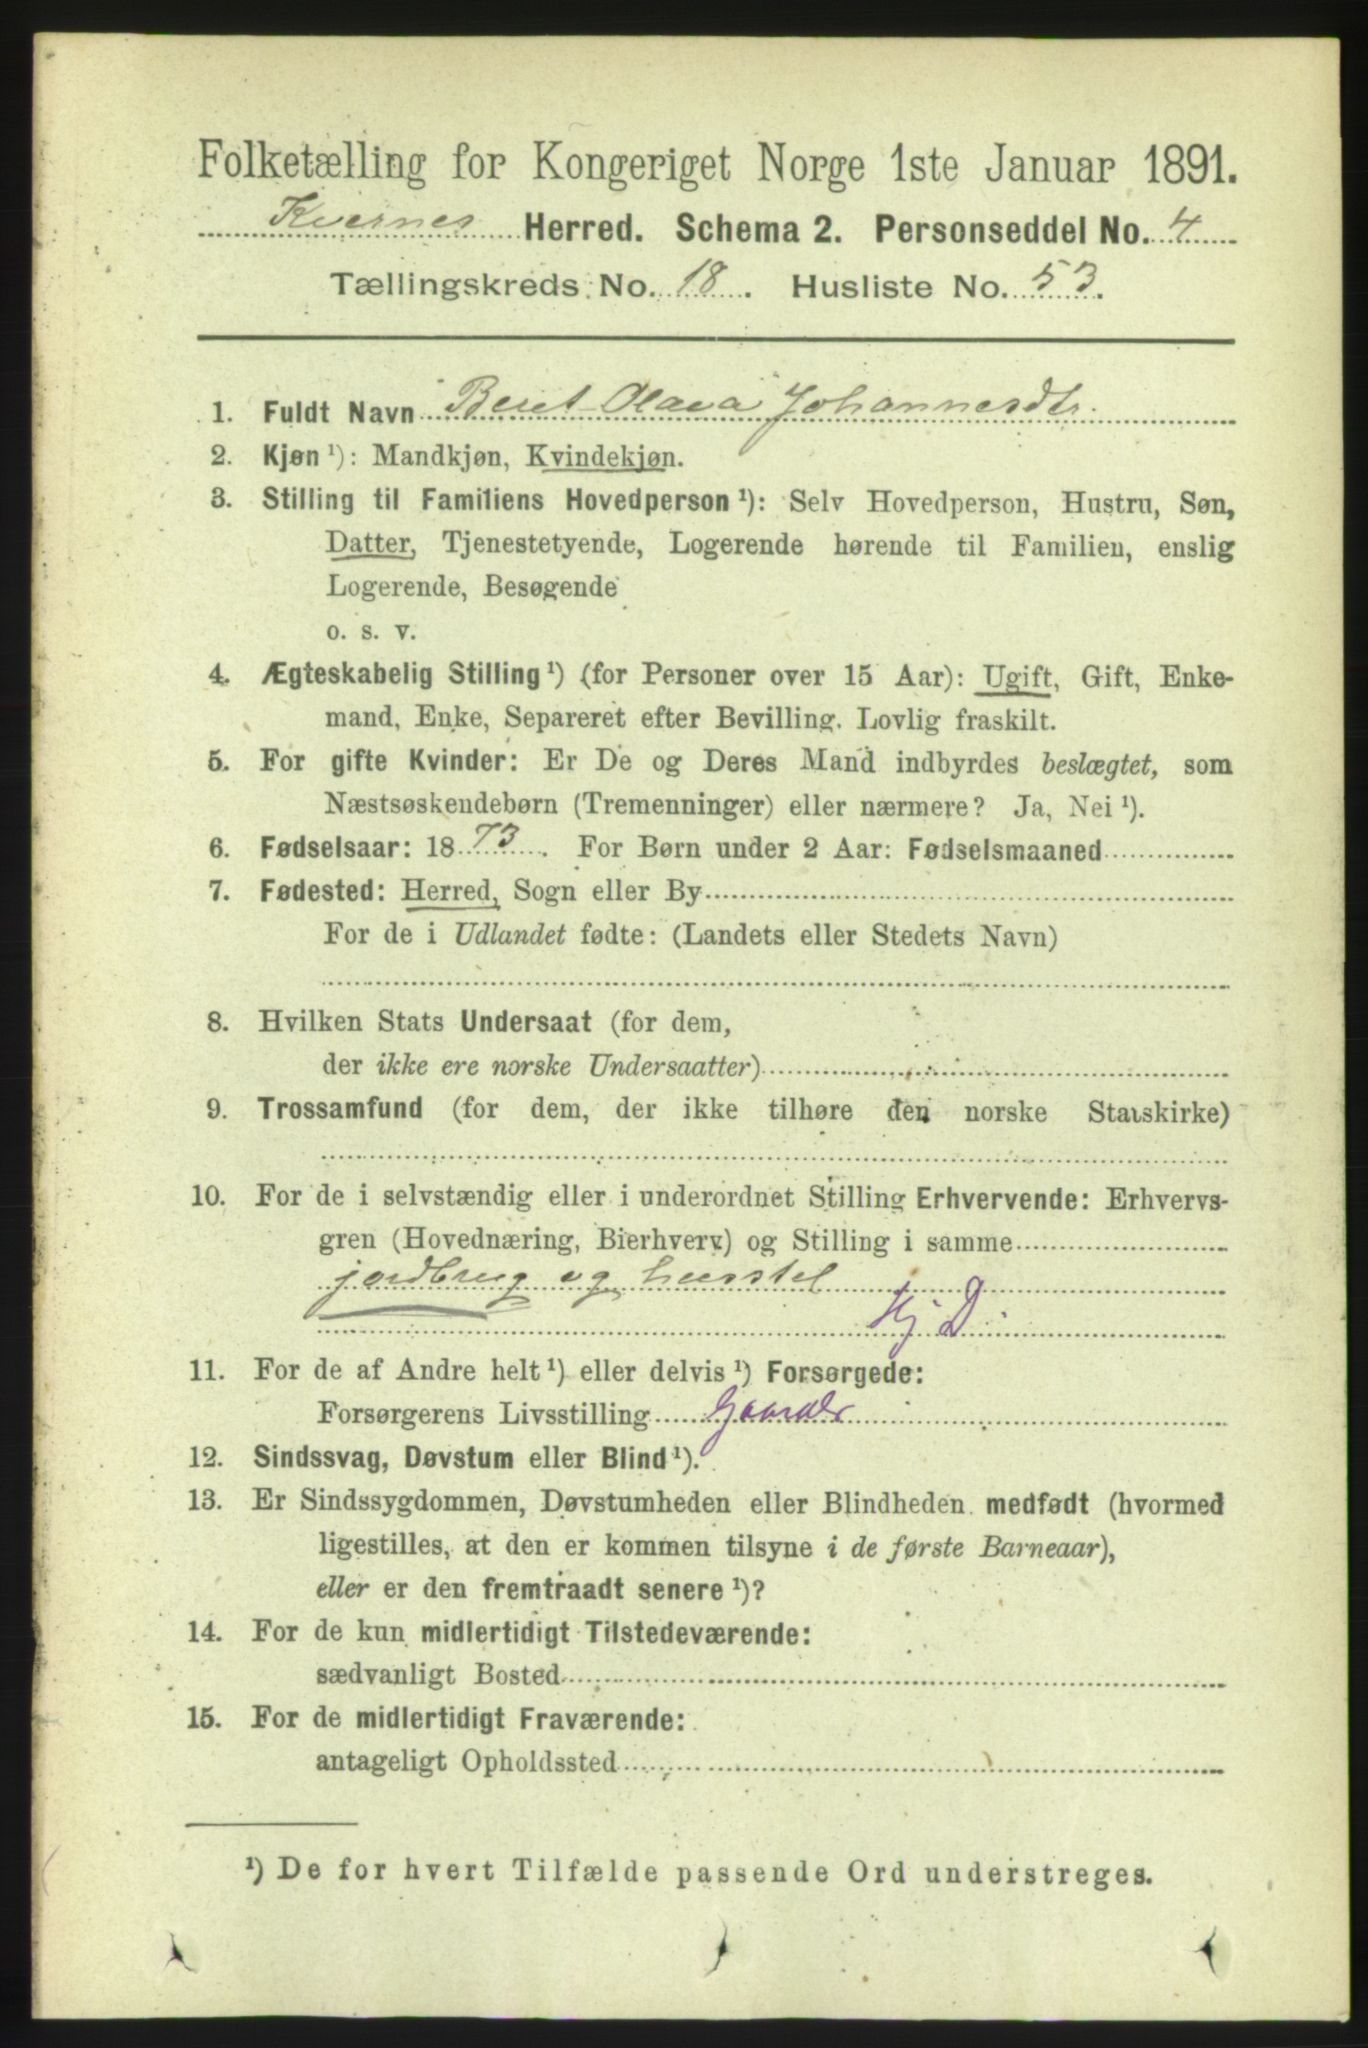 Folketælling for Kongeriget Norge 1ste Januar 1891.
Kvernes Herred. Schema 2. Personseddel No. 4
Tællingskreds No. 18. Husliste No. 53.
1. Fuldt Navn Beret Olava Johannesdtr.
2. Kjøn ¹): Mandkjøn, Kvindekjøn.
3. Stilling til Familiens Hovedperson ¹): Selv Hovedperson, Hustru, Søn,
Datter, Tjenestetyende, Logerende hørende til Familien, enslig
Logerende, Besøgende
o. s. v.
4. Ægteskabelig Stilling ¹) (for Personer over 15 Aar): Ugift, Gift, Enke-
mand, Enke, Separeret efter Bevilling. Lovlig fraskilt.
5. For gifte Kvinder: Er De og Deres Mand indbyrdes beslægtet, som
Næstsøskendebørn (Tremenninger) eller nærmere? Ja, Nei ¹).
6. Fødselsaar: 1873. For Børn under 2 Aar: Fødselsmaaned
7. Fødested: Herred, Sogn eller By
For de i Udlandet fødte: (Landets eller Stedets Navn)
8. Hvilken Stats Undersaat (for dem,
der ikke ere norske Undersaatter)
9. Trossamfund (for dem, der ikke tilhøre den norske Statskirke)
10. For de i selvstændig eller i underordnet Stilling Erhvervende: Erhvervs-
gren (Hovednæring, Bierhverv) og Stilling i samme
jordbrug og husstel
Hj D
11. For de af Andre helt ¹) eller delvis ¹) Forsørgede:
Forsørgerens Livsstilling Gaardbr
12. Sindssvag, Døvstum eller Blind ¹).
13. Er Sindssygdommen, Døvstumheden eller Blindheden medfødt (hvormed
ligestilles, at den er kommen tilsyne i de første Barneaar),
eller er den fremtraadt senere ¹)?
14. For de kun midlertidigt Tilstedeværende:
sædvanligt Bosted
15. For de midlertidigt Fraværende:
antageligt Opholdssted
¹) De for hvert Tilfælde passende Ord understreges.